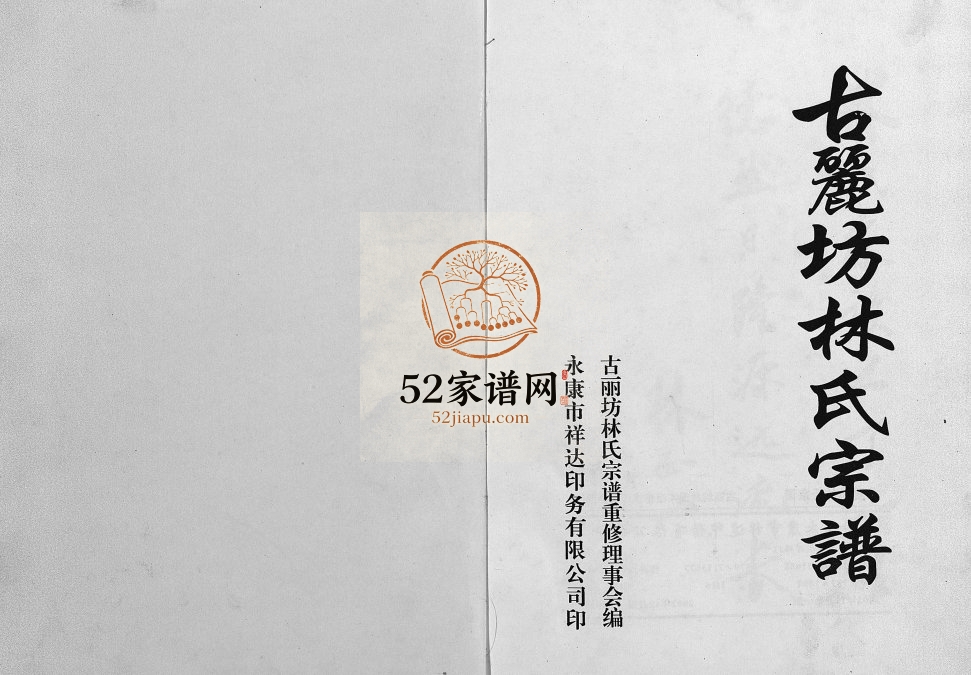 古麗坊林氏宗譜
古丽坊林氏宗谱重修理事会编
永康市祥达印务有限公司印
52家谱网
52jiapu.com